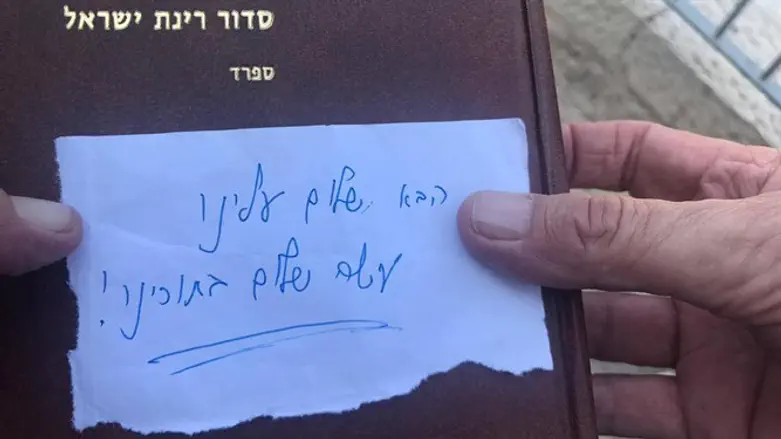 סדור רינת ישראל
ספרד
הבא שלום עלינו
עשה שלום בתוכינו!